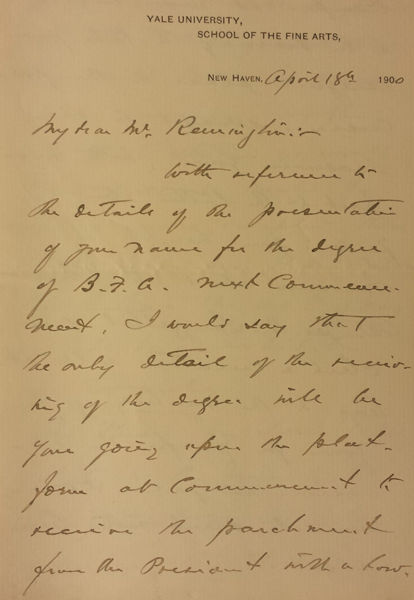 YALE UNIVERSITY,
SCHOOL OF THE FINE ARTS,
NEW HAVEN, April 18th 1900
My dear Mr. Remington:-
With reference to
the details of the presentation
of your name for the degree
of B.F.A. next Commence-
ment, I would say that
the only detail of the receiv-
ing of the degree will be
your going upon the plat-
form at Commencement to
receive the parchment
from the President with a bow.